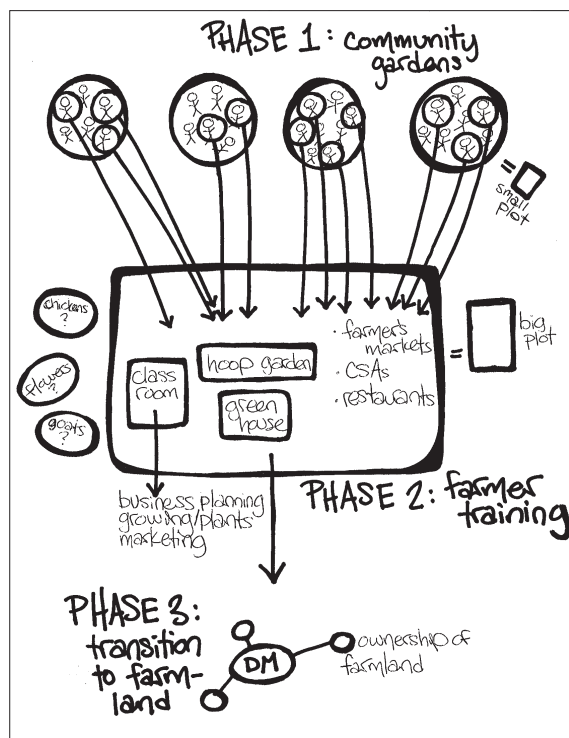 PHASE 1: community
gardens
= small
plot
chickens
?
flowers
?
goats
?
class
room
hoop garden
green
house
· farmer's
markets
· CSAs
· restaurants
= big
plot
business planning
growing/plants
marketing
PHASE 2: farmer
training
PHASE 3:
transition
to farm-
land
DM
ownership of
farmland